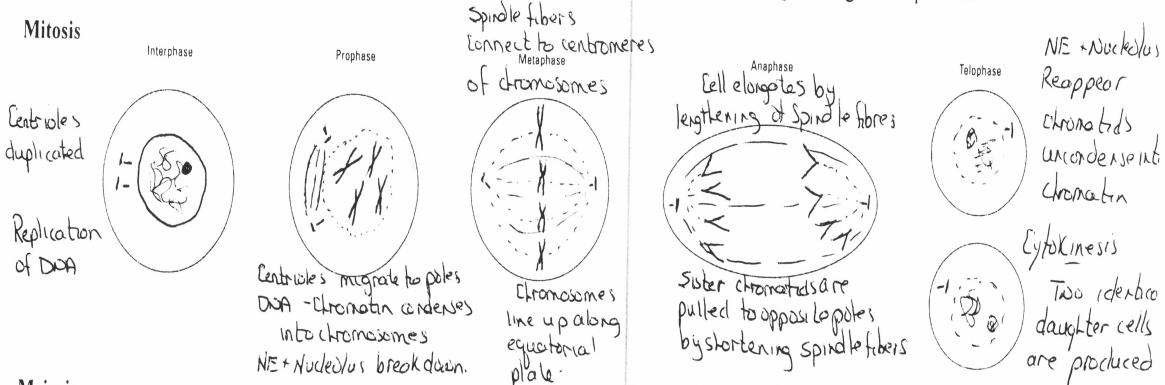 Mitosis
Interphase
Centrioles
duplicated
Replication
of DNA
Prophase
Centrioles migrate to poles
DNA - Chromatin condenses
into chromosomes
NE + Nucleolus breakdown.
Spindle fibers
Connect to centromeres
Metaphase
of chromosomes
Chromosomes
line up along
equatorial
plate.
Anaphase
Cell elongates by
lengthening of Spindle fibres
Sister chromatids are
pulled to opposite poles
by shortening spindle fibers
Telophase
NE + Nucleolus
Reappear
Chromatids
uncondense int
Chromatin
Cytokinesis
Two identica
daughter cells
are produced